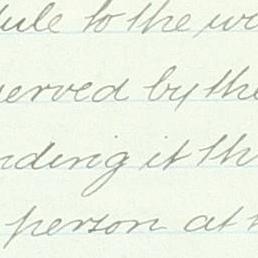 to the
served by the
nding it th
person at